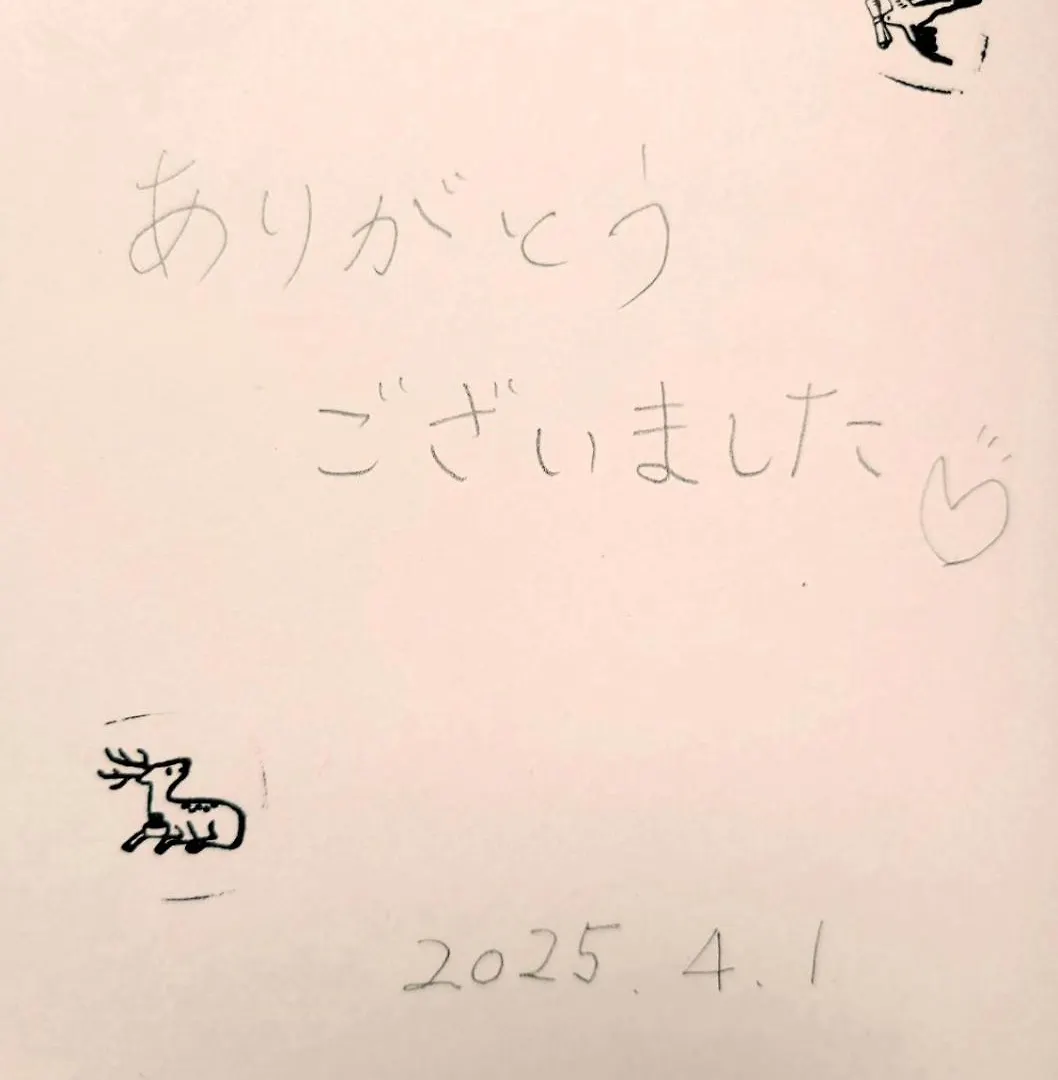 ありがとう
ございました♡
2025.4.1